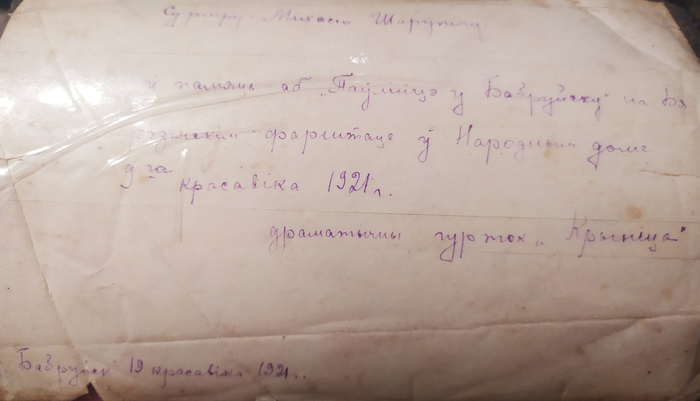 Суфлеру - Михасю
ў памяць аб „Паўлінцэ ў Бабруйску" на Бя
рэзінскім фарштаце ў Народным доме
9га красавіка 1921 г.
драматычны гурток „Крыніца"
Бабруйск 19 красавіка 1921 г.